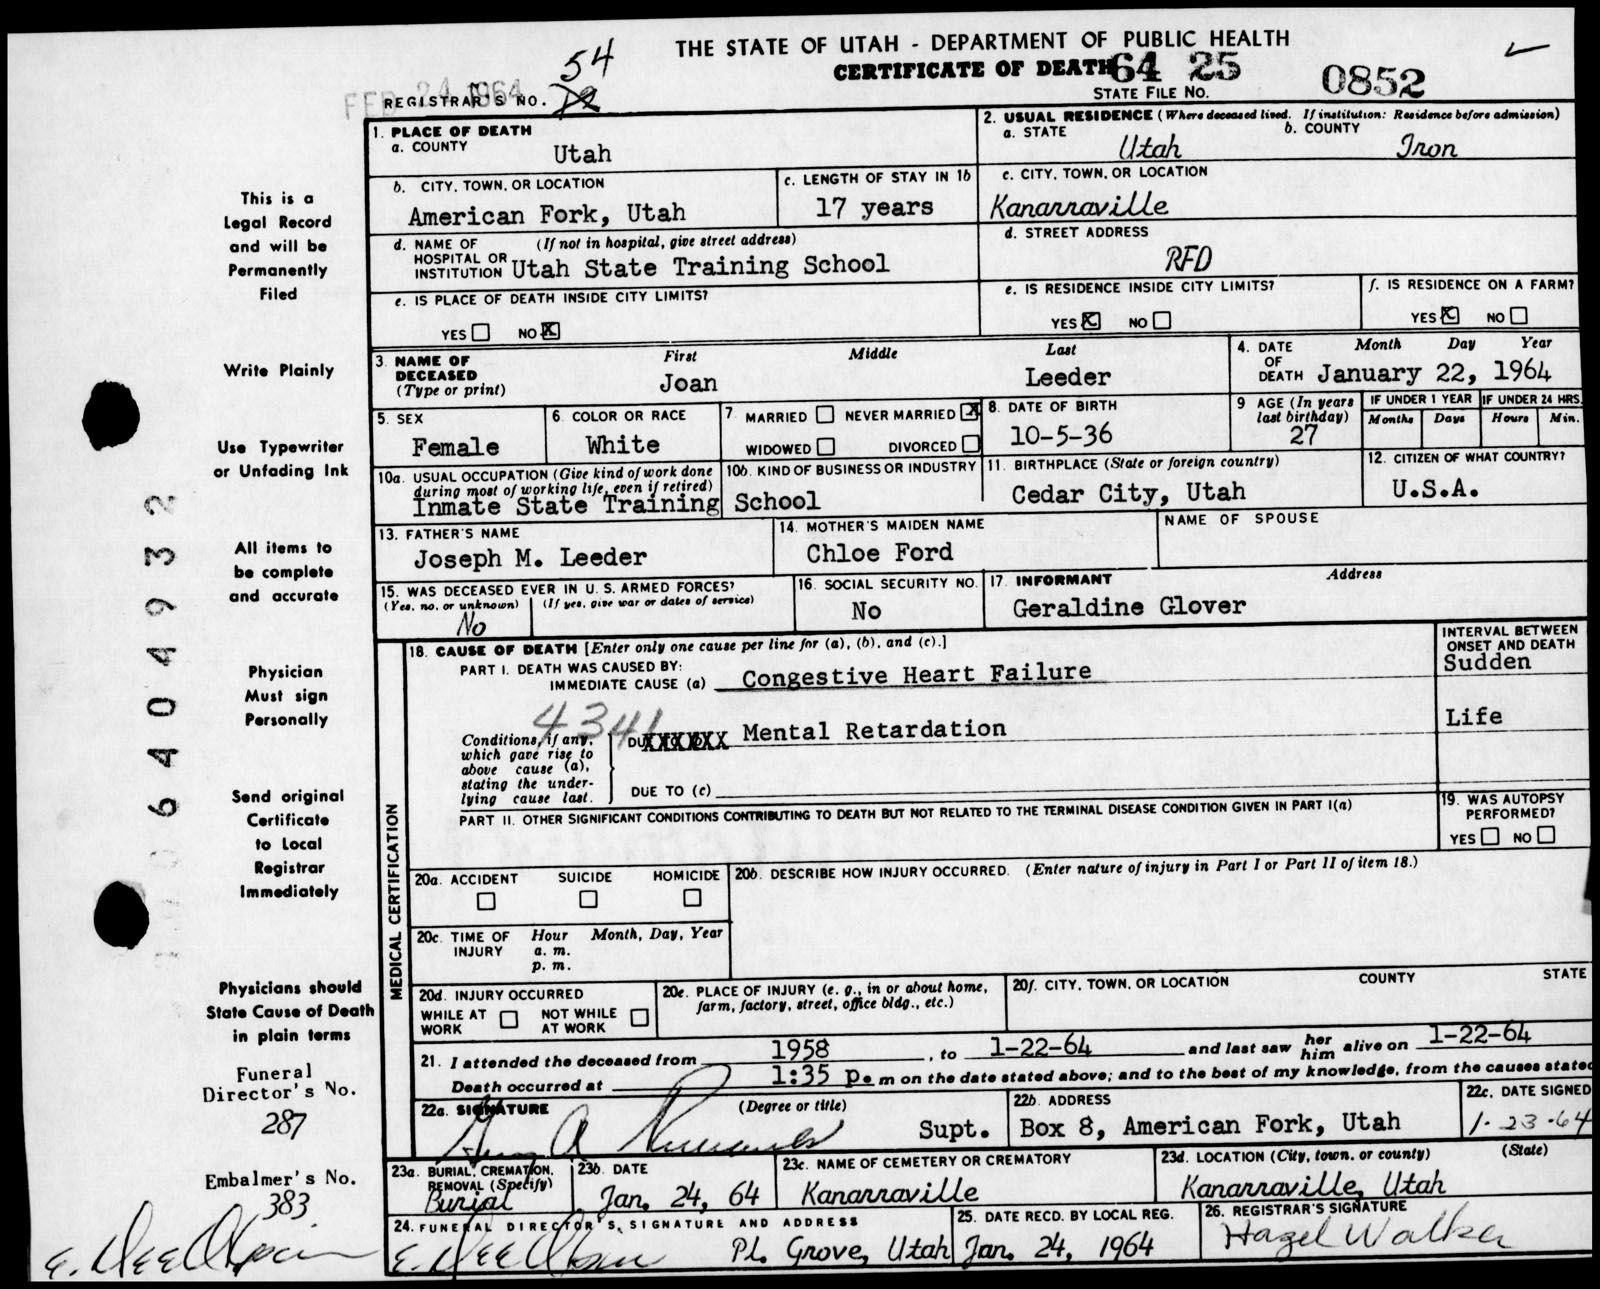 THE STATE OF UTAH - DEPARTMENT OF PUBLIC HEALTH
CERTIFICATE OF DEATH 64 25 0852
STATE FILE NO.
FEB 24 1964
REGISTRAR'S NO. 54
1. PLACE OF DEATH
a. COUNTY Utah
2. USUAL RESIDENCE (Where deceased lived. If institution: Residence before admission)
a. STATE Utah b. COUNTY Iron
b. CITY, TOWN, OR LOCATION American Fork, Utah
c. LENGTH OF STAY IN 1b 17 years
c. CITY, TOWN, OR LOCATION Kanarraville
d. NAME OF HOSPITAL OR INSTITUTION (If not in hospital, give street address) Utah State Training School
d. STREET ADDRESS RFD
e. IS PLACE OF DEATH INSIDE CITY LIMITS? YES NO X
e. IS RESIDENCE INSIDE CITY LIMITS? YES X NO
f. IS RESIDENCE ON A FARM? YES X NO
3. NAME OF DECEASED (Type or print) First Middle Last
Joan Leeder
4. DATE OF DEATH Month Day Year
January 22, 1964
5. SEX Female
6. COLOR OR RACE White
7. MARRIED NEVER MARRIED X WIDOWED DIVORCED
8. DATE OF BIRTH 10-5-36
9 AGE (In years last birthday) 27
IF UNDER 1 YEAR Months Days
IF UNDER 24 HRS. Hours Min.
10a. USUAL OCCUPATION (Give kind of work done during most of working life, even if retired)
Inmate State Training
10b. KIND OF BUSINESS OR INDUSTRY School
11. BIRTHPLACE (State or foreign country) Cedar City, Utah
12. CITIZEN OF WHAT COUNTRY? U.S.A.
13. FATHER'S NAME Joseph M. Leeder
14. MOTHER'S MAIDEN NAME Chloe Ford
NAME OF SPOUSE
15. WAS DECEASED EVER IN U. S. ARMED FORCES?
(Yes, no, or unknown) (If yes, give war or dates of service)
No
16. SOCIAL SECURITY NO. No
17. INFORMANT Address
Geraldine Glover
MEDICAL CERTIFICATION
18. CAUSE OF DEATH [Enter only one cause per line for (a), (b), and (c).]
INTERVAL BETWEEN ONSET AND DEATH
PART I. DEATH WAS CAUSED BY:
IMMEDIATE CAUSE (a) Congestive Heart Failure Sudden
4341
Conditions, if any, which gave rise to above cause (a), stating the underlying cause last.
DU XXXXXX Mental Retardation Life
DUE TO (c)
PART II. OTHER SIGNIFICANT CONDITIONS CONTRIBUTING TO DEATH BUT NOT RELATED TO THE TERMINAL DISEASE CONDITION GIVEN IN PART I(a)
19. WAS AUTOPSY PERFORMED? YES NO
20a. ACCIDENT SUICIDE HOMICIDE
20b. DESCRIBE HOW INJURY OCCURRED. (Enter nature of injury in Part I or Part II of item 18.)
20c. TIME OF INJURY Hour a. m. p. m. Month, Day, Year
20d. INJURY OCCURRED
WHILE AT WORK NOT WHILE AT WORK
20e. PLACE OF INJURY (e. g., in or about home, farm, factory, street, office bldg., etc.)
20f. CITY, TOWN, OR LOCATION COUNTY STATE
21. I attended the deceased from 1958, to 1-22-64 and last saw her him alive on 1-22-64
Death occurred at 1:35 P. m on the date stated above; and to the best of my knowledge, from the causes stated
22a. SIGNATURE (Degree or title) Supt.
22b. ADDRESS Box 8, American Fork, Utah
22c. DATE SIGNED 1-23-64
23a. BURIAL, CREMATION, REMOVAL (Specify) Burial
23b. DATE Jan. 24, 64
23c. NAME OF CEMETERY OR CREMATORY Kanarraville
23d. LOCATION (City, town, or county) (State) Kanarraville, Utah
24. FUNERAL DIRECTOR'S SIGNATURE AND ADDRESS
Pl. Grove, Utah
25. DATE RECD. BY LOCAL REG. Jan. 24, 1964
26. REGISTRAR'S SIGNATURE Hazel Walker
This is a
Legal Record
and will be
Permanently
Filed
Write Plainly
Use Typewriter
or Unfading Ink
All items to
be complete
and accurate
Physician
Must sign
Personally
Send original
Certificate
to Local
Registrar
Immediately
Physicians should
State Cause of Death
in plain terms
Funeral
Director's No.
287
Embalmer's No.
383
6404932